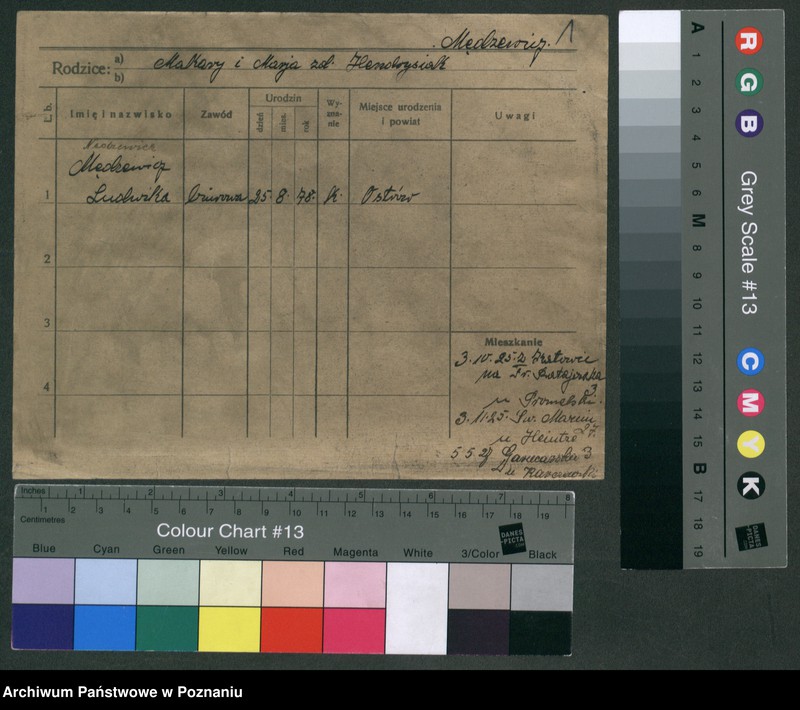 Mędzewicz. 1
Rodzice: a) b) Makary i Marja zd. Hendrysiak
L. b.
Imię i nazwisko
Zawód
Urodzin
dzień
mies.
rok
Wyznanie
Miejsce urodzenia i powiat
Uwagi
Mędzewicz
1 Ludwika biurowa 25. 8. 78. k. Ostrów
2
3
4
Mieszkanie
3. 10. 25. z
na Fr. Ratajczaka 3
u
3. 11. 25. Św. Marcin 27.
u Heintze
5 5 27 Garncarska 3
u
Inches 1 2 3 4 5 6 7 8
Centimetres 1 2 3 4 5 6 7 8 9 10 11 12 13 14 15 16 17 18 19
Colour Chart #13
Blue Cyan Green Yellow Red Magenta White 3/Color Black
DANES PICTA .COM
A 1 2 3 4 5 6 M 8 9 10 11 12 13 14 15 B 17 18 19
R G B
Grey Scale #13
C M Y K
Archiwum Państwowe w Poznaniu